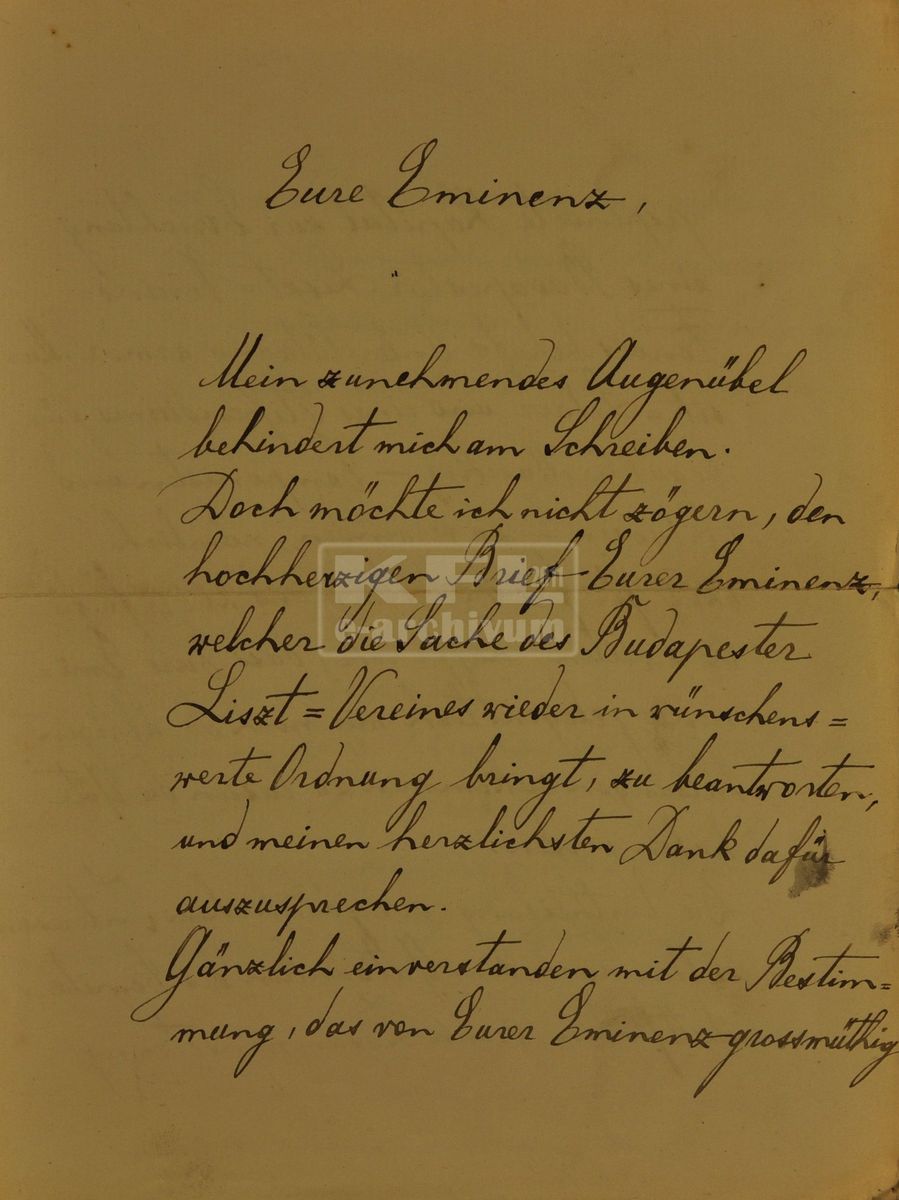 Eure Eminenz,
Mein zunehmendes Augenübel
behindert mich am Schreiben.
Doch möchte ich nicht zögern, den
hochherzigen Brief Eurer Eminenz,
welcher die Sache des Budapester
Liszt=Vereines wieder in wünschens=
werte Ordnung bringt, zu beantworten,
und meinen herzlichsten Dank dafür
auszusprechen.
Gänzlich einverstanden mit der Bestim=
mung, das von Eurer Eminenz grossmüthig
KFL
e-archivum